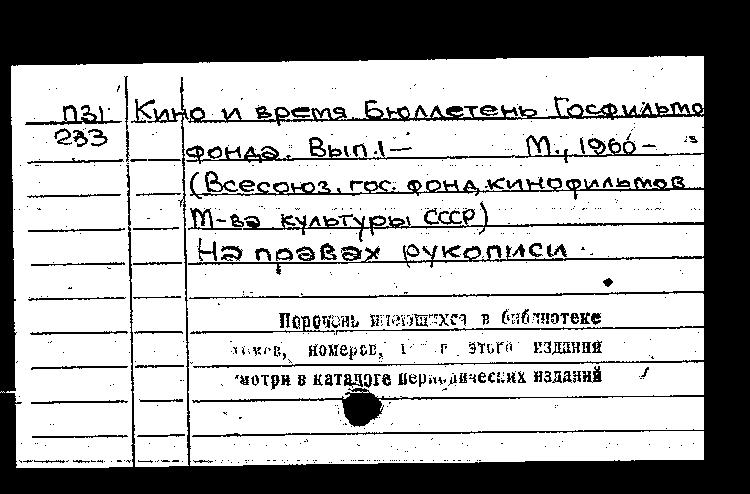 П31 Кино и время Бюллетень Госфильмо
233 фонда. Вып.1— М., 1960—
(Всесоюз. гос. фонд кинофильмов
М-ва культуры СССР)
На правах рукописи
Перечень имеющихся в библиотеке
номеров, этого издания
смотри в каталоге периодических изданий